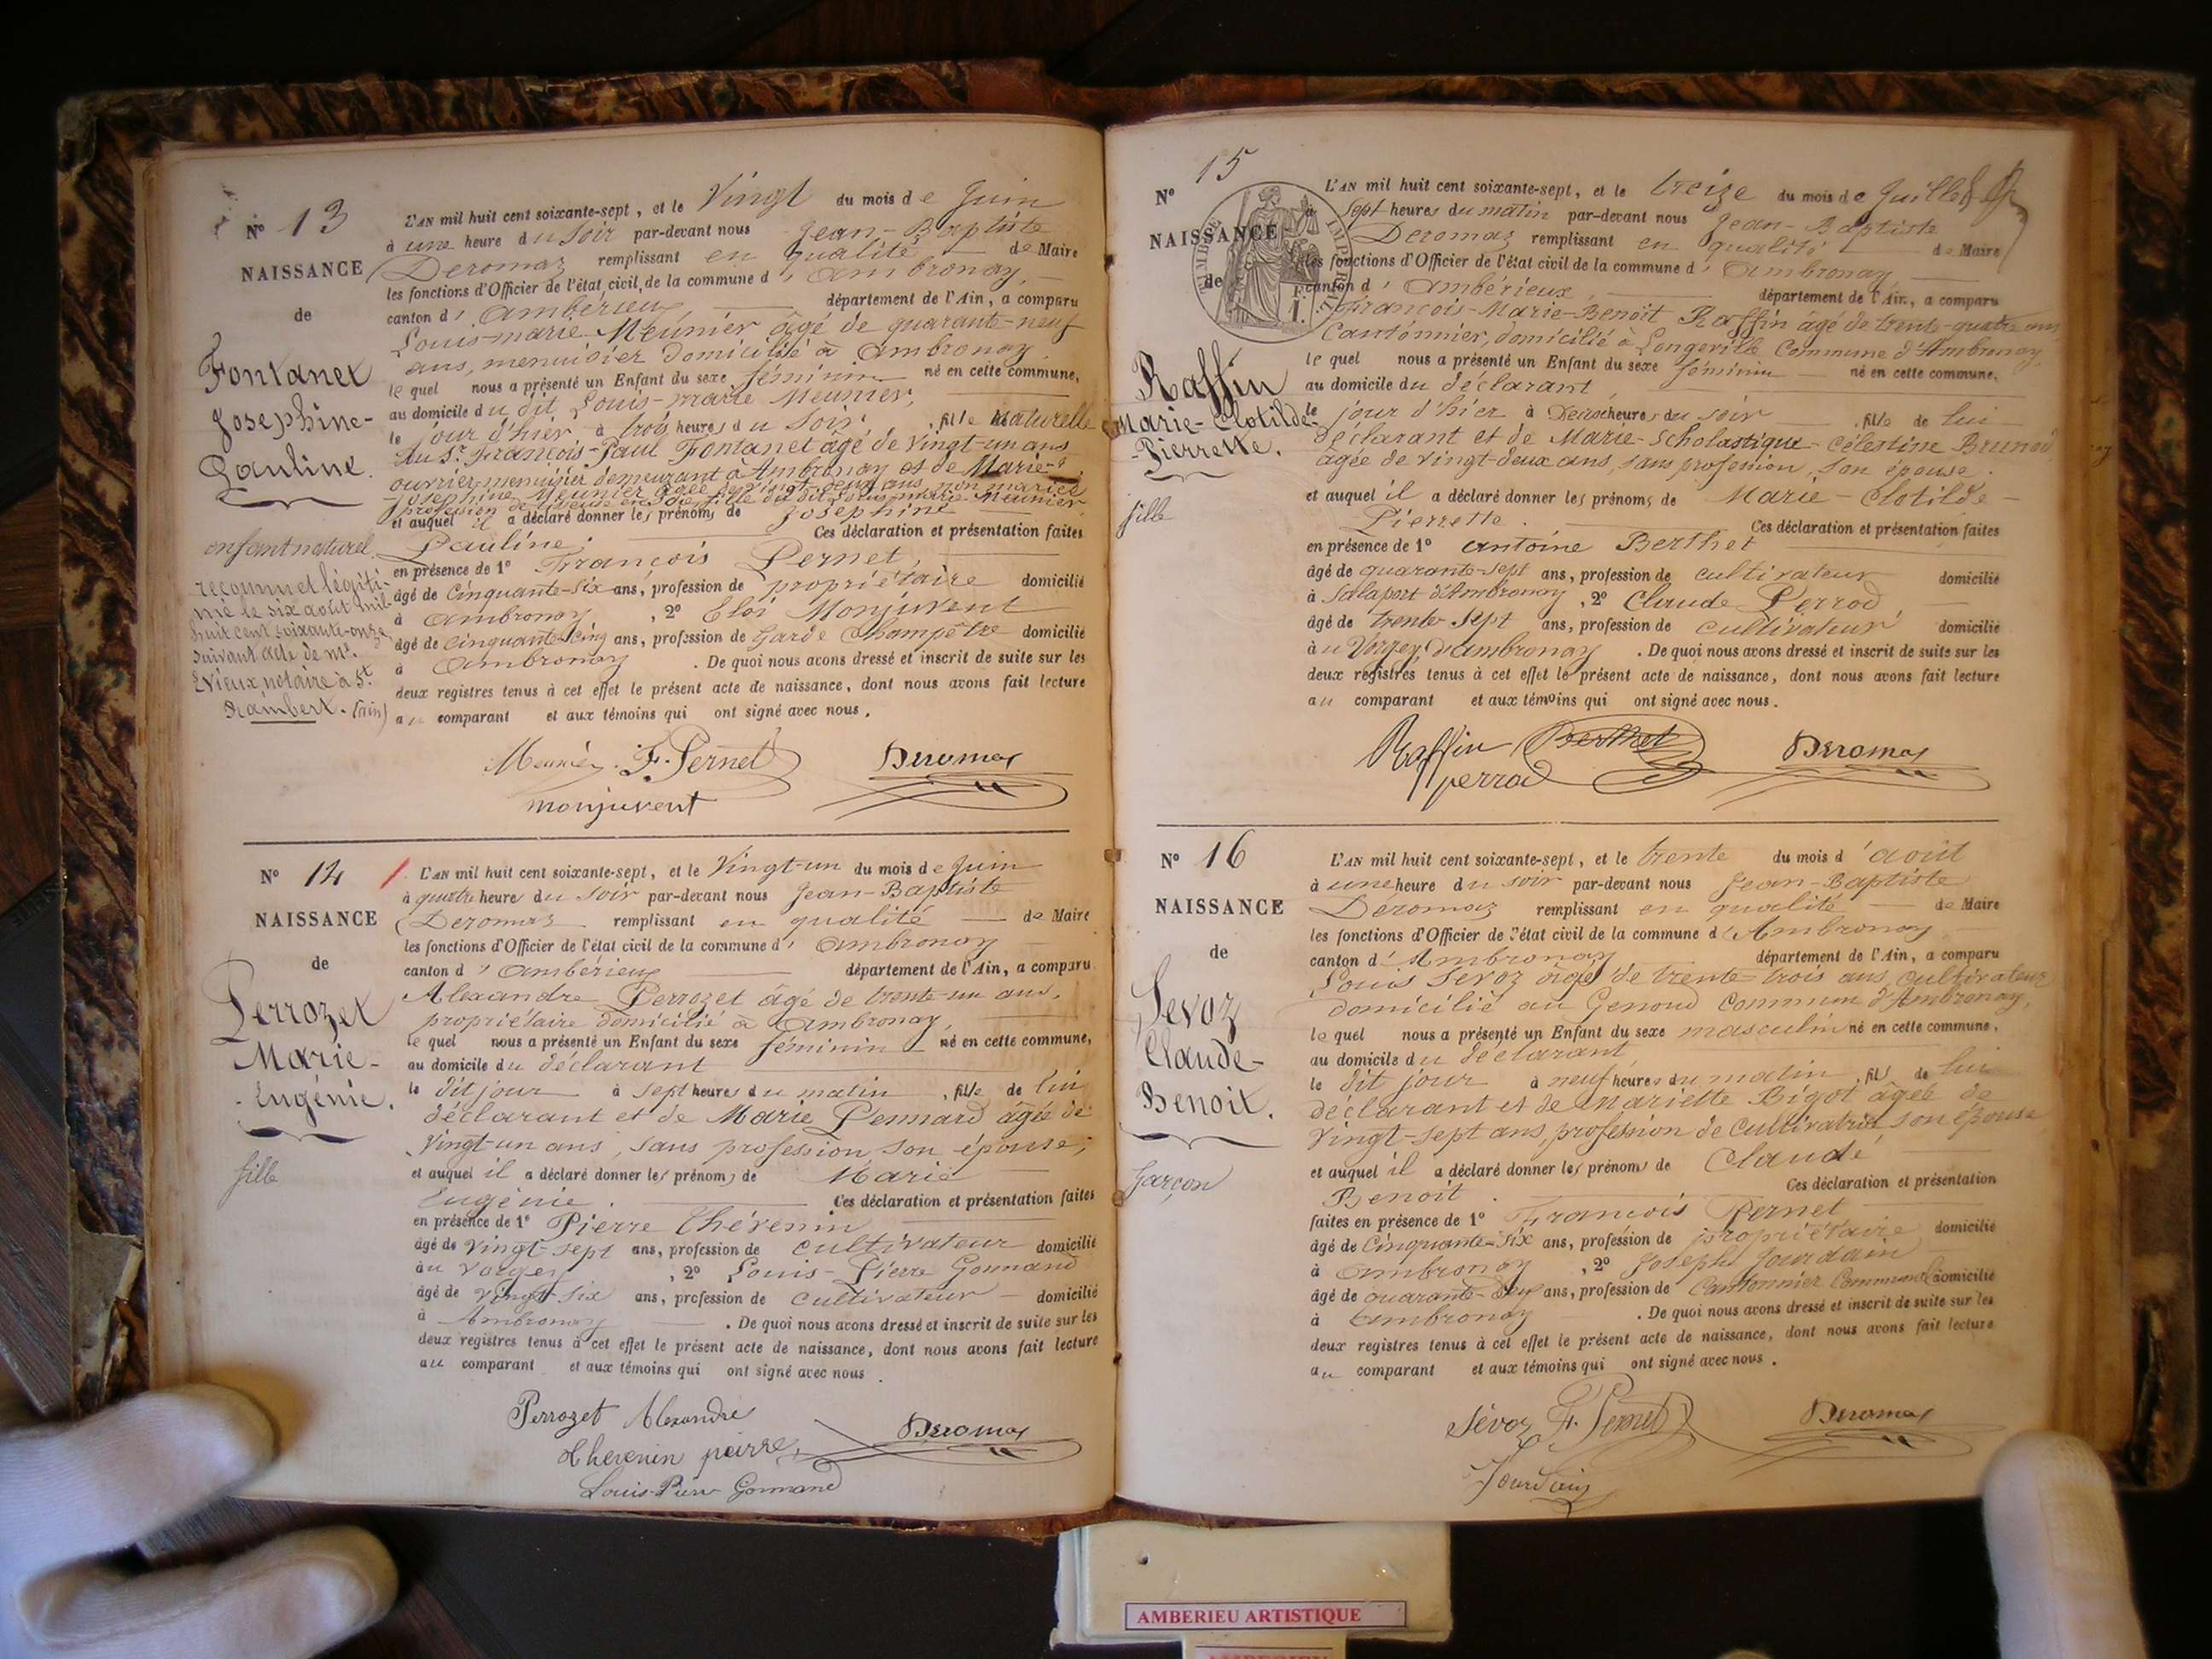 N° 13
NAISSANCE
de
Fontanet
Josephine-
Pauline.
enfant naturel
reconnu et légiti-
mé le six août mil
huit cent soixante-onze
suivant acte de me.
Evieux notaire à St.
Rambert. (ain)
L'AN mil huit cent soixante-sept, et le Vingt du mois de Juin
à une heure du Soir par-devant nous Jean-Baptiste
Deromas remplissant en qualité de Maire
les fonctions d'Officier de l'état civil, de la commune d'Ambronay,
canton d'Ambérieux département de l'Ain, a comparu
Louis-marie Meunier âgé de quarante-neuf
ans, menuisier domicilié à Ambronay
le quel nous a présenté un Enfant du sexe féminin né en cette commune,
au domicile du dit Louis-marie Meunier,
le jour d'hier à trois heures du Soir, fille naturelle
du Sr. François-Paul Fontanet agé de vingt-un ans
ouvrier menuisier demeurant à Ambronay et de Marie-
Josephine Meunier agée de vingt-deux ans non mariée
profession de fille du dit Louis marie Meunier,
et auquel il a déclaré donner les prénoms de Josephine
Pauline. Ces déclaration et présentation faites
en présence de 1° François Pernet,
âgé de Cinquante-six ans, profession de propriétaire domicilié
à Ambronay, 2° Eloi Monjuvent
âgé de cinquante-cinq ans, profession de Garde Champêtre domicilié
à Ambronay. De quoi nous avons dressé et inscrit de suite sur les
deux registres tenus à cet effet le présent acte de naissance, dont nous avons fait lecture
au comparant et aux témoins qui ont signé avec nous.
Meunier F. Pernet Deromas
monjuvent
N° 14
NAISSANCE
de
Perrozet
Marie-
-Eugénie.
fille
L'AN mil huit cent soixante-sept, et le Vingt-un du mois de Juin
à quatre heures du Soir par-devant nous Jean-Baptiste
Deromas remplissant en qualité de Maire
les fonctions d'Officier de l'état civil de la commune d'Ambronay
canton d'Ambérieux département de l'Ain, a comparu
Alexandre Perrozet âgé de trente-un ans,
propriétaire domicilié à Ambronay,
le quel nous a présenté un Enfant du sexe féminin né en cette commune,
au domicile du déclarant
le dit jour à sept heures du matin, fille de lui
déclarant et de Marie Pennard âgée de
vingt-un ans, sans profession son épouse;
et auquel il a déclaré donner les prénoms de Marie
Eugénie. Ces déclaration et présentation faites
en présence de 1° Pierre Thévenin
âgé de vingt-sept ans, profession de cultivateur domicilié
au Vorgey, 2° Louis-Pierre Gonnand
âgé de vingt-six ans, profession de cultivateur domicilié
à Ambronay. De quoi nous avons dressé et inscrit de suite sur les
deux registres tenus à cet effet le présent acte de naissance, dont nous avons fait lecture
au comparant et aux témoins qui ont signé avec nous.
Perrozet Alexandre Deromas
thevenin peirre
Louis-Pierre Gonnand
N° 15
NAISSANCE
de
Raffin
Marie-Clotilde-
-Pierrette.
fille
L'AN mil huit cent soixante-sept, et le treize du mois de Juillet
à Sept heures du matin par-devant nous Jean-Baptiste
Deromas remplissant en qualité de Maire
les fonctions d'Officier de l'état civil de la commune d'Ambronay
canton d'Ambérieux département de l'Ain, a comparu
François-Marie-Benoît Raffin âgé de trente-quatre ans
Cantonnier, domicilié à Longeville Commune d'Ambronay,
le quel nous a présenté un Enfant du sexe féminin né en cette commune,
au domicile du déclarant
le jour d'hier à Deux heures du soir, fille de lui
déclarant et de Marie-Scholastique-Célestine Brunet
âgée de vingt-deux ans, sans profession, son épouse.
et auquel il a déclaré donner les prénoms de Marie-Clotilde-
Pierrette. Ces déclaration et présentation faites
en présence de 1° Antoine Berthet
âgé de quarante-sept ans, profession de cultivateur domicilié
à Salaport d'Ambronay, 2° Claude Perrod,
âgé de trente sept ans, profession de cultivateur domicilié
au Vorgey d'Ambronay. De quoi nous avons dressé et inscrit de suite sur les
deux registres tenus à cet effet le présent acte de naissance, dont nous avons fait lecture
au comparant et aux témoins qui ont signé avec nous.
Raffin Berthet Deromas
perrod
N° 16
NAISSANCE
de
Sevoz
Claude-
Benoit.
Garçon
L'AN mil huit cent soixante-sept, et le trente du mois d'août
à une heure du soir par-devant nous Jean-Baptiste
Deromas remplissant en qualité de Maire
les fonctions d'Officier de l'état civil de la commune d'Ambronay
canton d'Ambronay département de l'Ain, a comparu
Louis Sevoz âgé de trente-trois ans, cultivateur
domicilié au Genoud Commun d'Ambronay,
le quel nous a présenté un Enfant du sexe masculin né en cette commune,
au domicile du déclarant,
le dit jour à neuf heures du matin, fils de lui
déclarant et de Mariette Bigot âgée de
vingt-sept ans, profession de cultivatrice son épouse
et auquel il a déclaré donner les prénoms de Claude
Benoit. Ces déclaration et présentation
faites en présence de 1° François Pernet
âgé de Cinquante-six ans, profession de propriétaire domicilié
à Ambronay, 2° Joseph Jourdain
âgé de quarante- ans, profession de Cantonnier Communal domicilié
à Ambronay. De quoi nous avons dressé et inscrit de suite sur les
deux registres tenus à cet effet le présent acte de naissance, dont nous avons fait lecture
au comparant et aux témoins qui ont signé avec nous.
Sévoz F. Pernet Deromas
Jourdain
AMBERIEU ARTISTIQUE